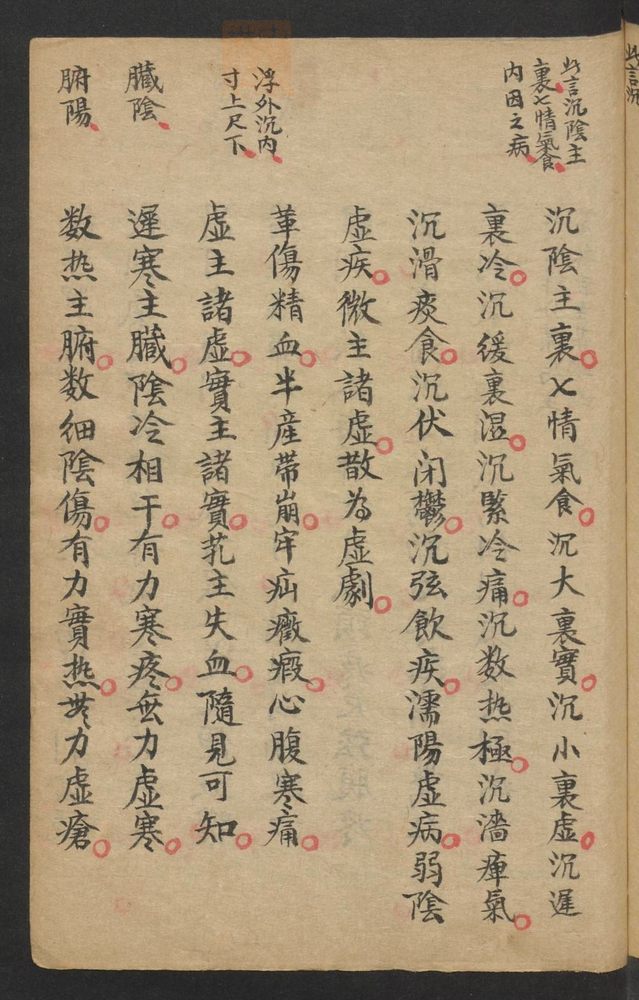 此言沉陰主
裏七情氣食
内因之病
沉陰主裏乂情氣食沉大裏實沉小裏虛沉遲
裏冷沉緩裏湿沉緊冷痛沉数热極沉濇痺氣
沉滑痰食沉伏闭鬱沉弦飲疾濡陽虛病弱陰
虛疾微主諸虛散為虛劇
浮外沉内
寸上尺下
革傷精血半産帶崩牢疝癥瘕心腹寒痛
虛主諸虛實主諸實芤主失血隨見可知
臟陰
遲寒主臟陰冷相干有力寒疼無力虛寒
腑陽
数热主腑数細陰傷有力實热無力虛瘡
此言沉